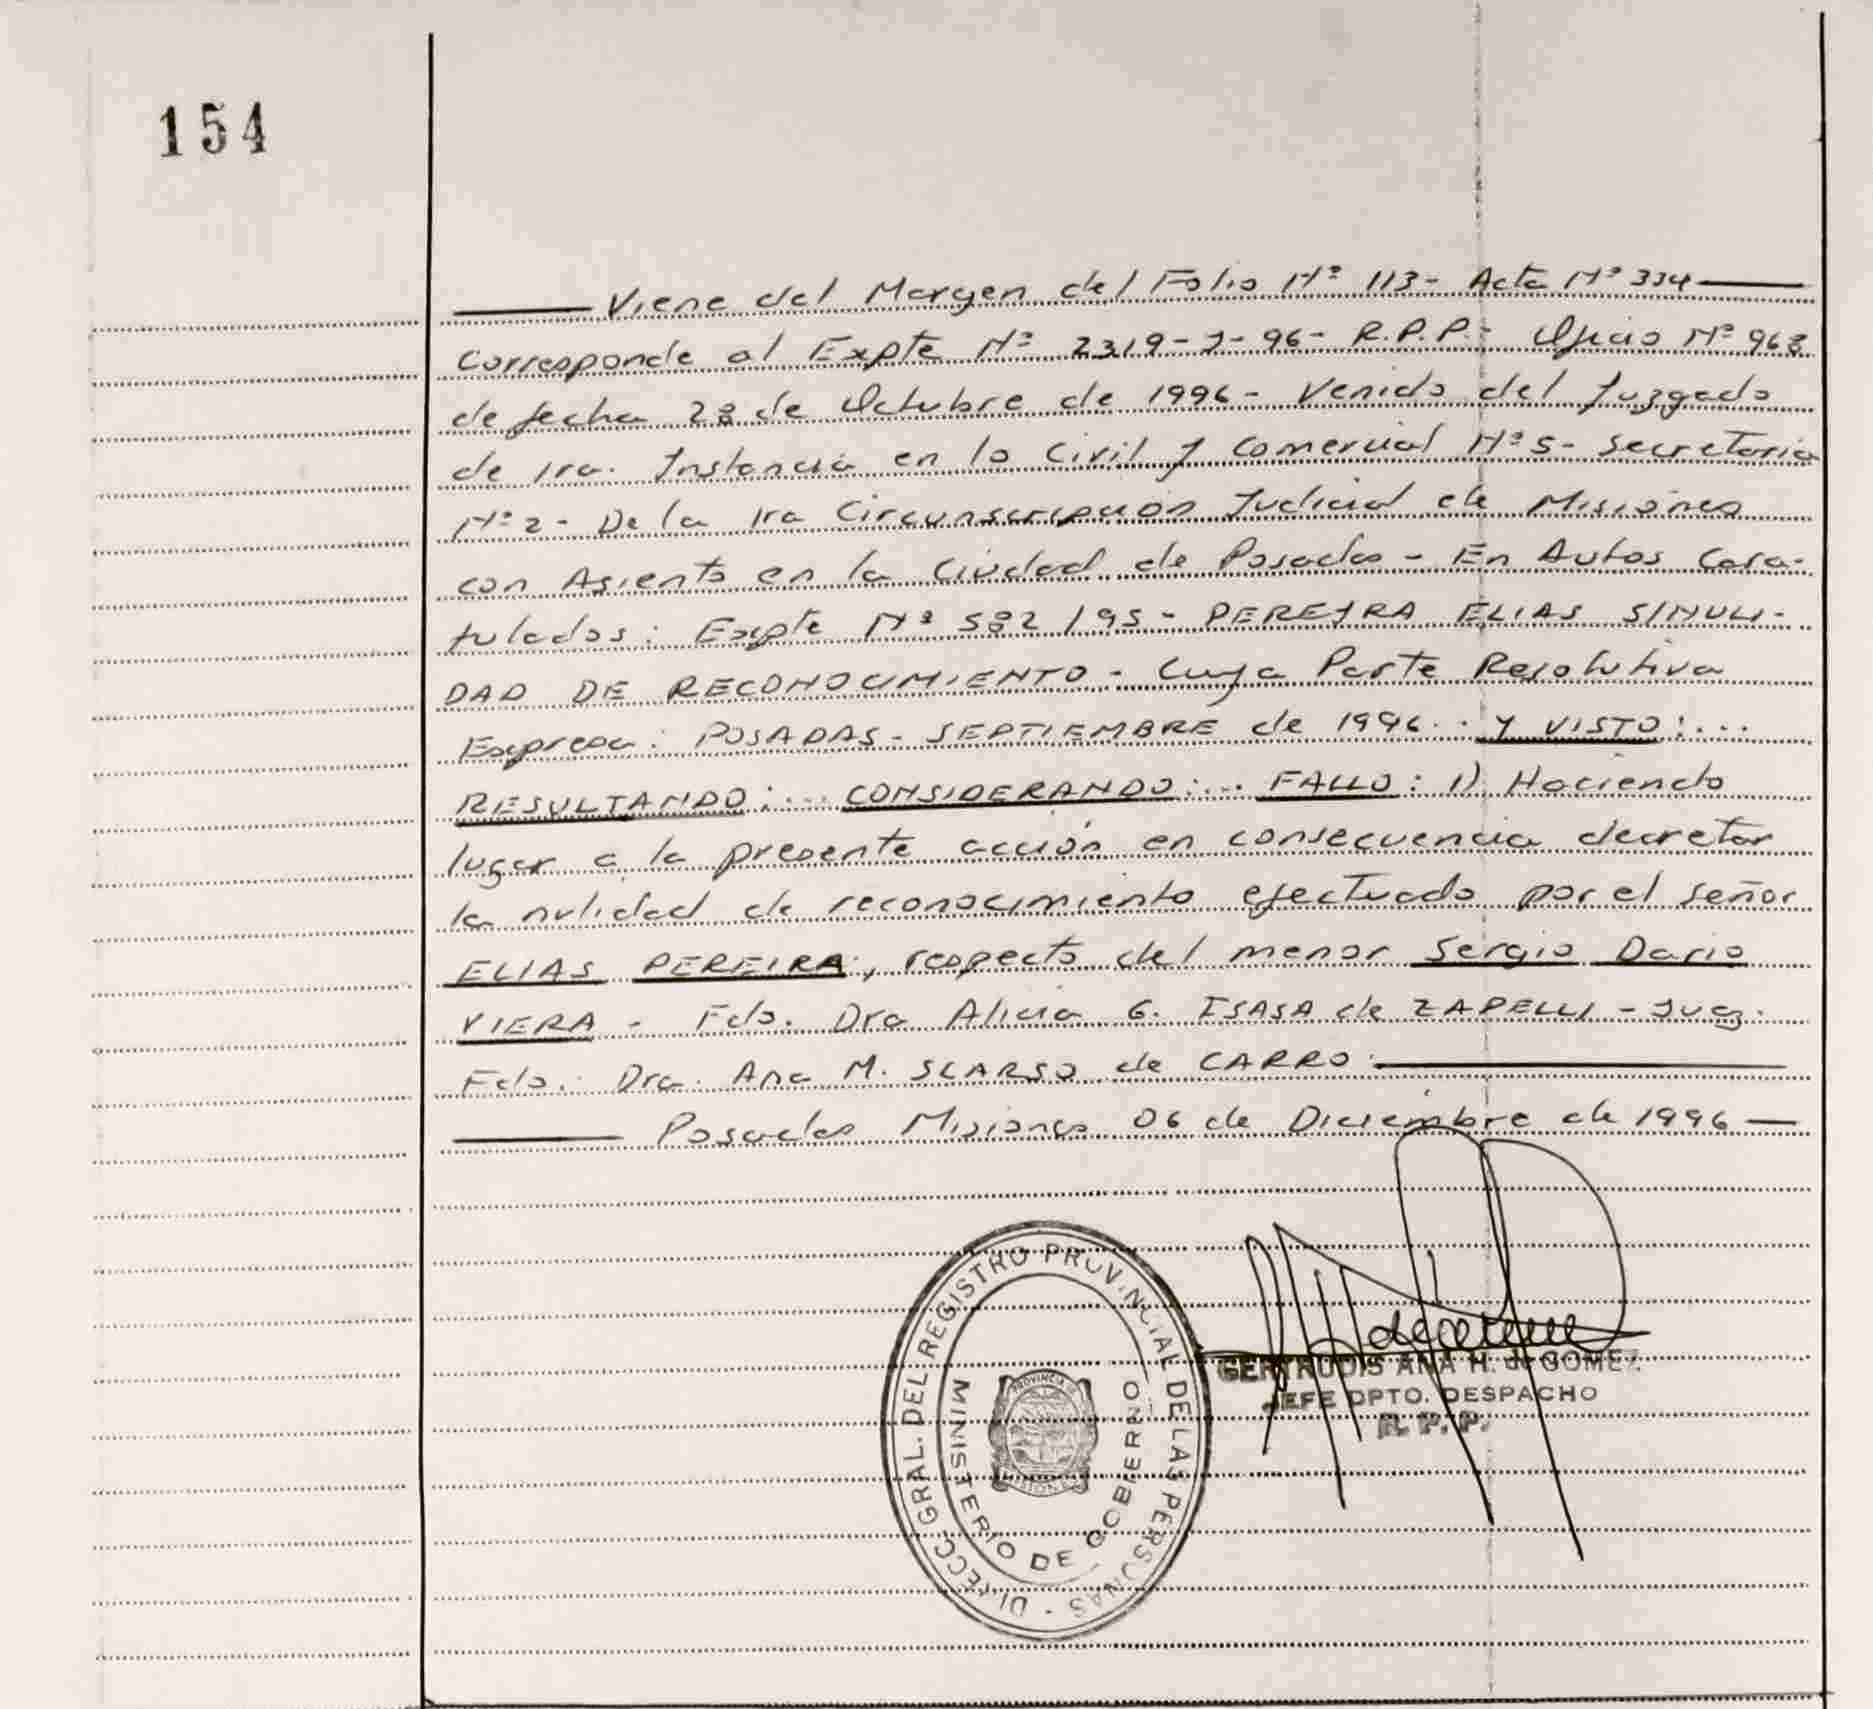 154
Viene del Margen del Folio Nº 113- Acta Nº 334
Corresponde al Expte Nº 2319-J-96- R.P.P.- Oficio Nº 968
de fecha 28 de Octubre de 1996- Venido del Juzgado
de 1ra. Instancia en lo Civil y Comercial Nº 5- Secretaria
Nº 2- De la 1ra Circunscripción Judicial de Misiones
con Asiento en la Ciudad de Posadas- En Autos Cara-
tulados: Expte Nº 582/95- PEREIRA ELIAS S/NULI-
DAD DE RECONOCIMIENTO- Cuya Parte Resolutiva
Expresa: POSADAS- SEPTIEMBRE de 1996.. Y VISTO:...
RESULTANDO:... CONSIDERANDO:... FALLO: 1) Haciendo
lugar a la presente acción en consecuencia decretar
la nulidad de reconocimiento efectuado por el señor
ELIAS PEREIRA, respecto del menor Sergio Dario
VIERA- Fdo. Dra Alicia G. ISASA de ZAPELLI- Juez.
Fdo. Dra. Ana M. SCARSO de CARRO.
Posadas Misiones 06 de Diciembre de 1996
DIRECC. GRAL. DEL REGISTRO PROVINCIAL DE LAS PERSONAS -
MINISTERIO DE GOBIERNO
PROVINCIA DE
MISIONES
GERTRUDIS ANA H. de GOMEZ
JEFE DPTO. DESPACHO
R. P. P.